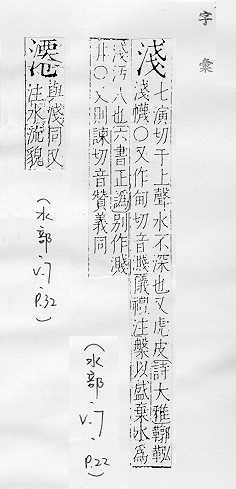 字彙
淺
七演切千上聲水不深也又虎皮詩大雅鞹鞃
淺幭○又作甸切音濺儀禮注槃以盛棄水為
淺汚人也六書正譌別作濺
非○又則諫切音贊義同
(水部·V.7·P.22)
與淺同又
注水流貌
(水部·V.7·P.32)